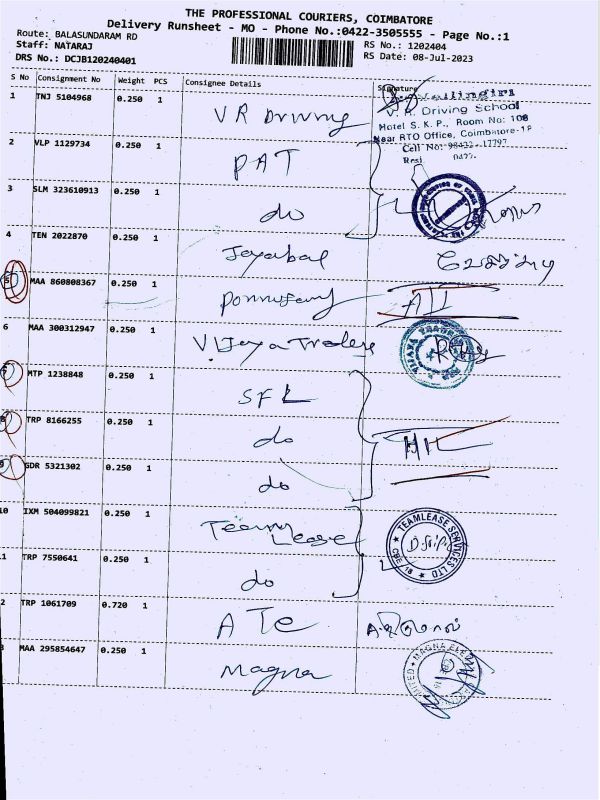 THE PROFESSIONAL COURIERS, COIMBATORE
Delivery Runsheet - MO - Phone No.:0422-3505555 - Page No.:1
Route: BALASUNDARAM RD
Staff: NATARAJ
DRS No.: DCJB120240401
RS No.: 1202404
RS Date: 08-Jul-2023
S No Consignment No Weight PCS Consignee Details Signature
1 TNJ 5104968 0.250 1 VR Driving
V. R. Driving School
Hotel S. K. P., Room No: 108
Near RTO Office, Coimbatore-18
Cell No: 98422-17797
Resi
2 VLP 1129734 0.250 1 PAT
3 SLM 323610913 0.250 1 do
4 TEN 2022870 0.250 1 Jeyabal
5 MAA 860808367 0.250 1
6 MAA 300312947 0.250 1 Vijaya Traders
VIJAYA TRADERS
7 MTP 1238848 0.250 1 SFL
8 TRP 8166255 0.250 1 do
9 GDR 5321302 0.250 1 do
10 IXM 504099821 0.250 1 Team Lease
TEAMLEASE SERVICES LTD
CBE-18
11 TRP 7550641 0.250 1 do
12 TRP 1061709 0.720 1 ATC
13 MAA 295854647 0.250 1 Magna